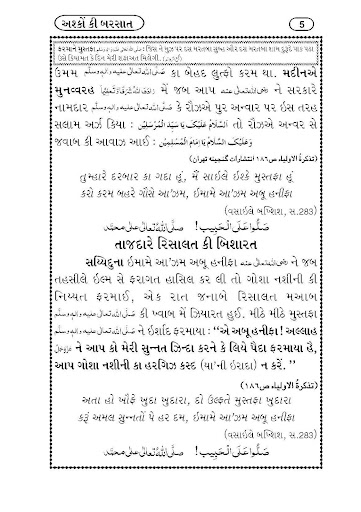 અશ્કોં કી બરસાત 5
ફરમાને મુસ્તફા صلَّى اللهُ تعالى عليه واله وسلَّم : જિસ ને મુઝ પર દસ મરતબા સુબ્હ ઔર દસ મરતબા શામ દુરૂદે પાક પઢા
ઉસે કિયામત કે દિન મેરી શફાઅત મિલેગી.
ઉમમ صلَّى اللهُ تعالى عليه واله وسلَّم કા બેહદ લુત્ફો કરમ થા. મદીનએ
મુનવ્વરહ મેં જબ આપ رضى الله تعالى عنه ને સરકારે
નામદાર صلَّى اللهُ تعالى عليه واله وسلَّم કે રૌઝએ પુર અન્વાર પર ઇસ તરહ
સલામ અર્ઝ કિયા : اَلسَّلَامُ عَلَیْکَ یَا سَیِّدَ الْمُرْسَلِیْن તો રૌઝએ અન્વર સે
જવાબ કી આવાઝ આઈ : وَعَلَیْکَ السَّلَامُ یَا اِمَامَ الْمُسْلِمِیْن
(تذکرۃ الاولیاء ص۱۸۶ انتشارات گنجینہ تہران)
તુમ્હારે દરબાર કા ગદા હૂં, મૈં સાઇલે ઇશ્કે મુસ્તફા હૂં
કરો કરમ બહરે ગૌસે આ'ઝમ, ઇમામે આ'ઝમ અબૂ હનીફા
(વસાઇલે બખ્શિશ, સ.283)
صَلُّوا عَلَى الْحَبِیب! صلَّى اللهُ تعالى على محمَّد
તાજદારે રિસાલત કી બિશારત
સય્યિદુના ઇમામે આ'ઝમ અબૂ હનીફા رضى الله تعالى عنه ને જબ
તહસીલે ઇલ્મ સે ફરાગત હાસિલ કર લી તો ગોશા નશીની કી
નિય્યત ફરમાઈ, એક રાત જનાબે રિસાલત મઆબ
صلَّى اللهُ تعالى عليه واله وسلَّم કી ખ્વાબ મેં ઝિયારત હુઈ. મીઠે મીઠે મુસ્તફા
صلَّى اللهُ تعالى عليه واله وسلَّم ને ઇર્શાદ ફરમાયા : ''એ અબૂ હનીફા! અલ્લાહ
عَزَّوَجَلَّ ને આપ કો મેરી સુન્નત ઝિન્દા કરને કે લિયે પૈદા ફરમાયા હૈ,
આપ ગોશા નશીની કા હરગિઝ કસ્દ (યા'ની ઇરાદા) ન કરેં.''
(تذکرۃ الاولیاء ص۱۸۶)
અતા હો ખૌફે ખુદા ખુદારા, દો ઉલ્ફતે મુસ્તફા ખુદારા
કરૂં અમલ સુન્નતોં પે હર દમ, ઇમામે આ'ઝમ અબૂ હનીફા
(વસાઇલે બખ્શિશ, સ.283)
صَلُّوا عَلَى الْحَبِیب! صلَّى اللهُ تعالى على محمَّد